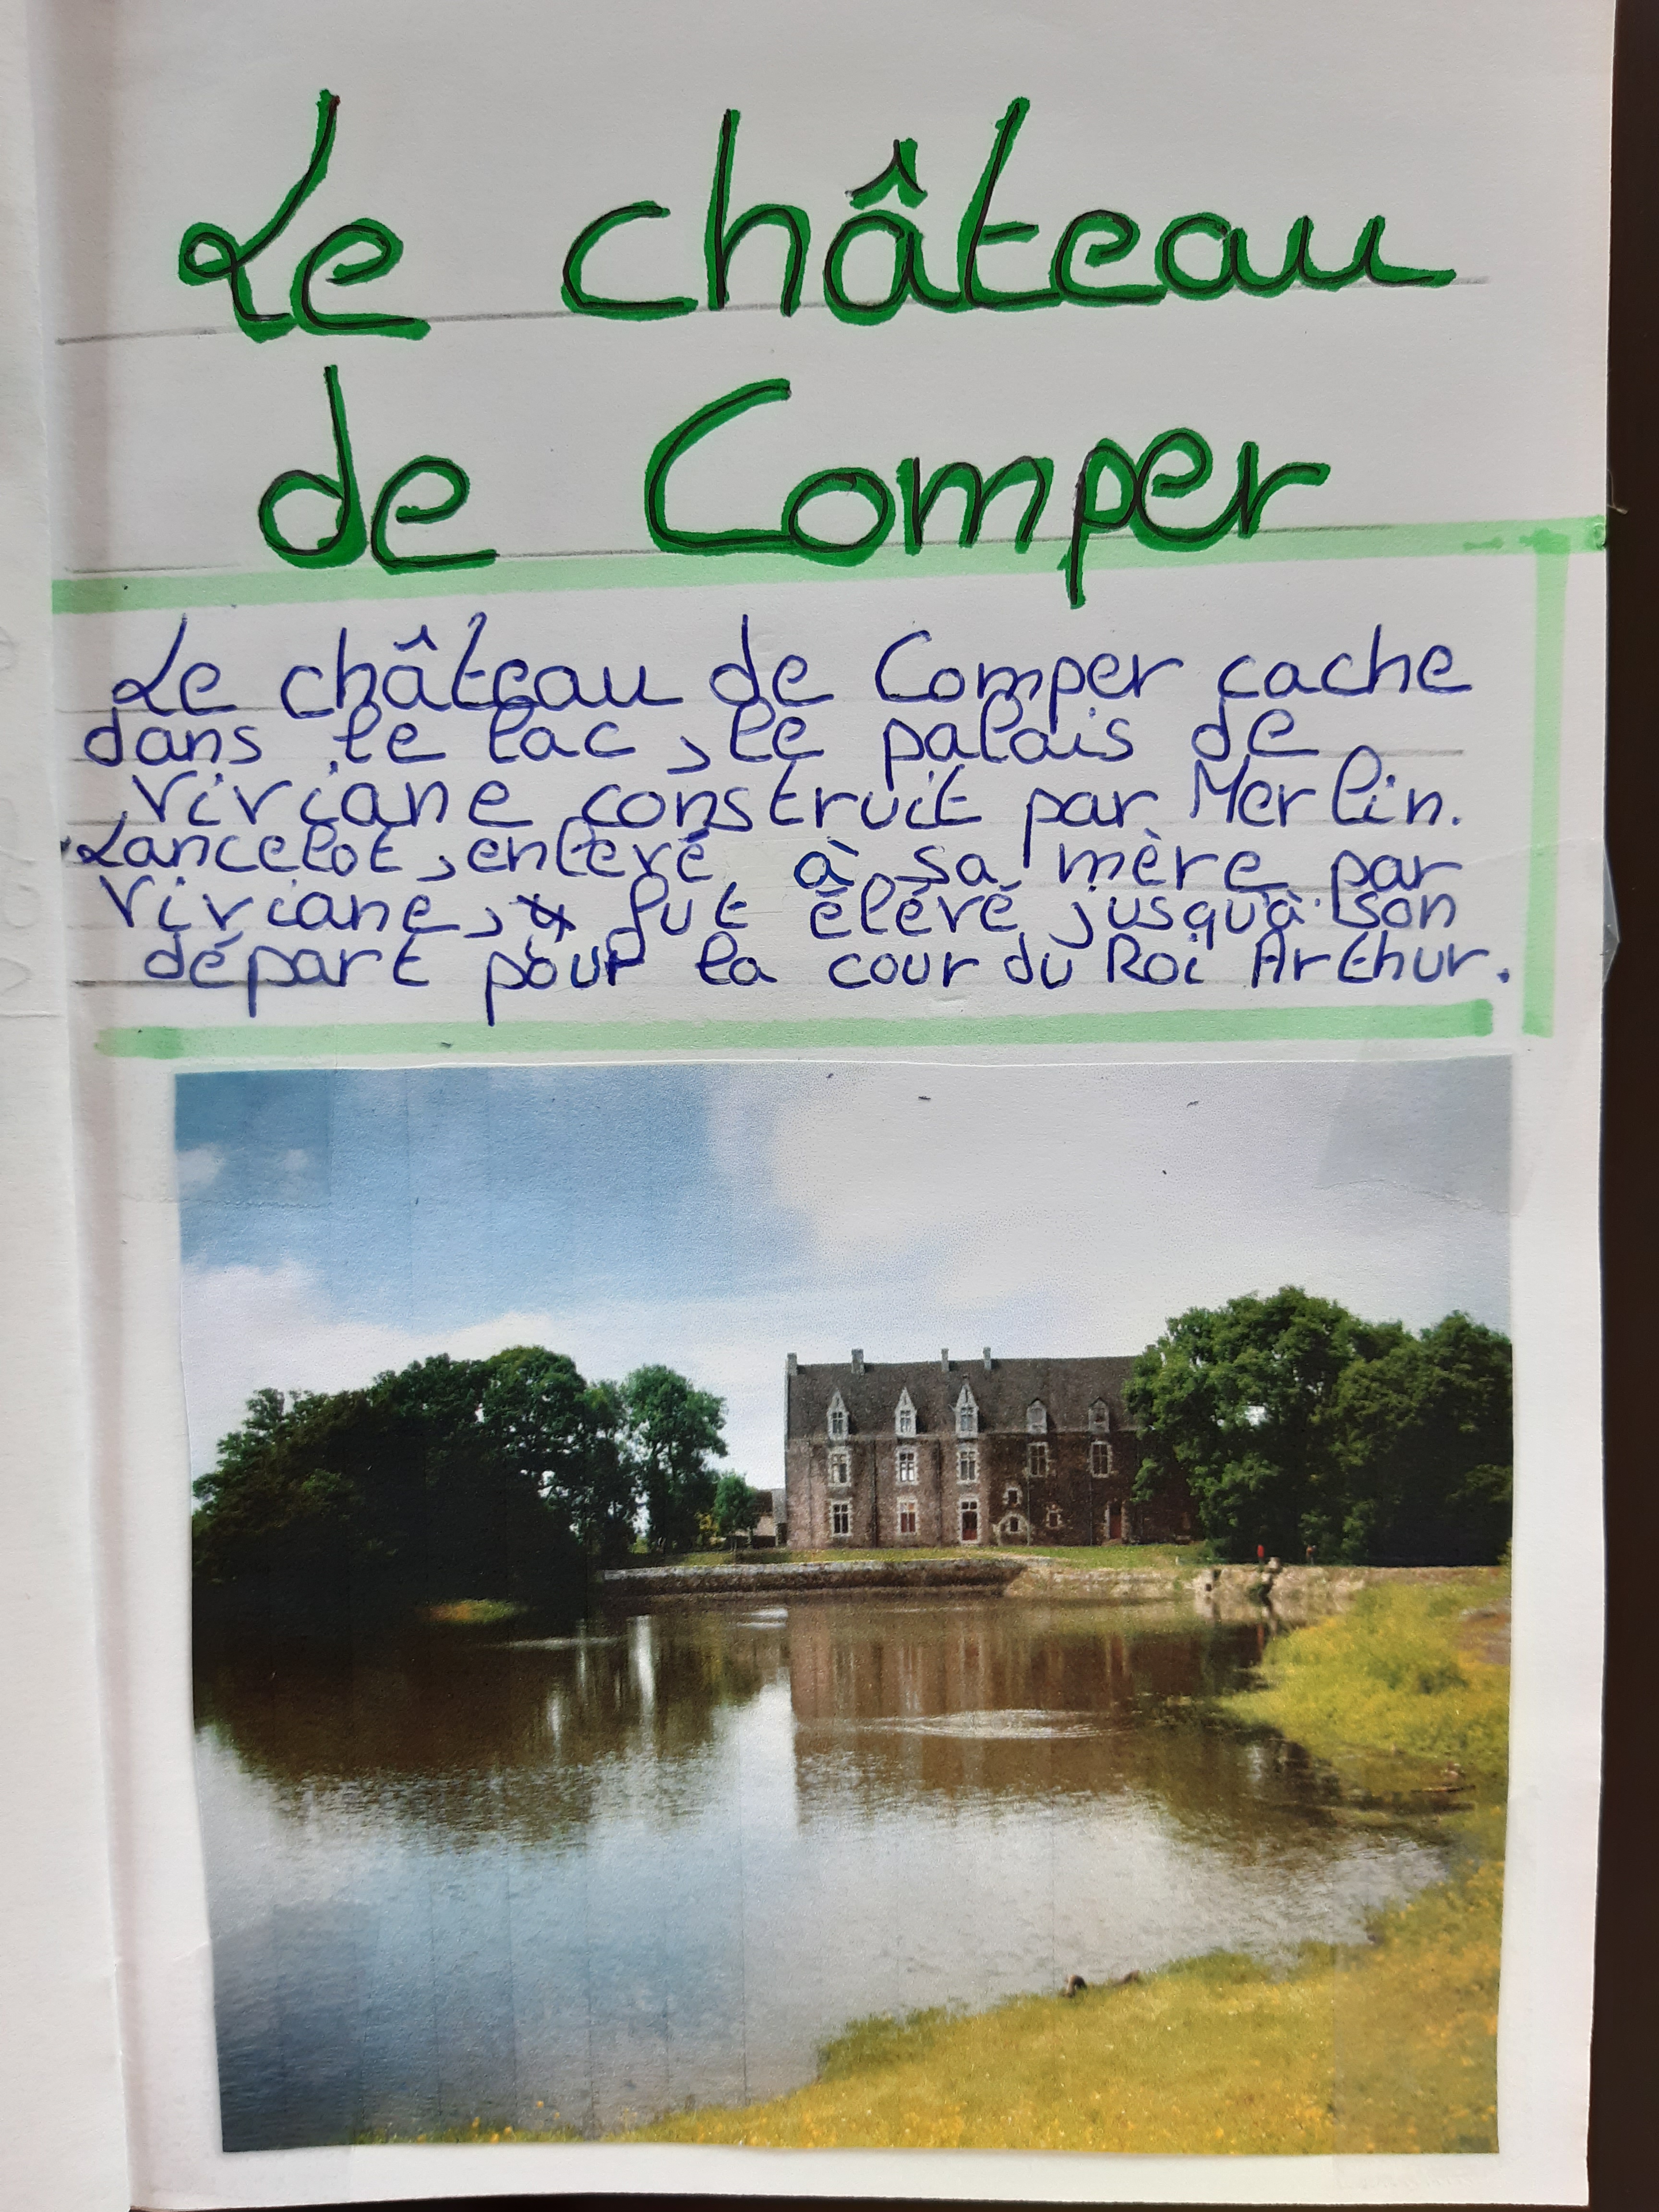 Le château
de Comper
Le château de Comper cache
dans le lac, le palais de
Viviane construit par Merlin.
Lancelot, enlevé à sa mère par
Viviane, fut élévé jusqu'à son
départ pour la cour du Roi Arthur.